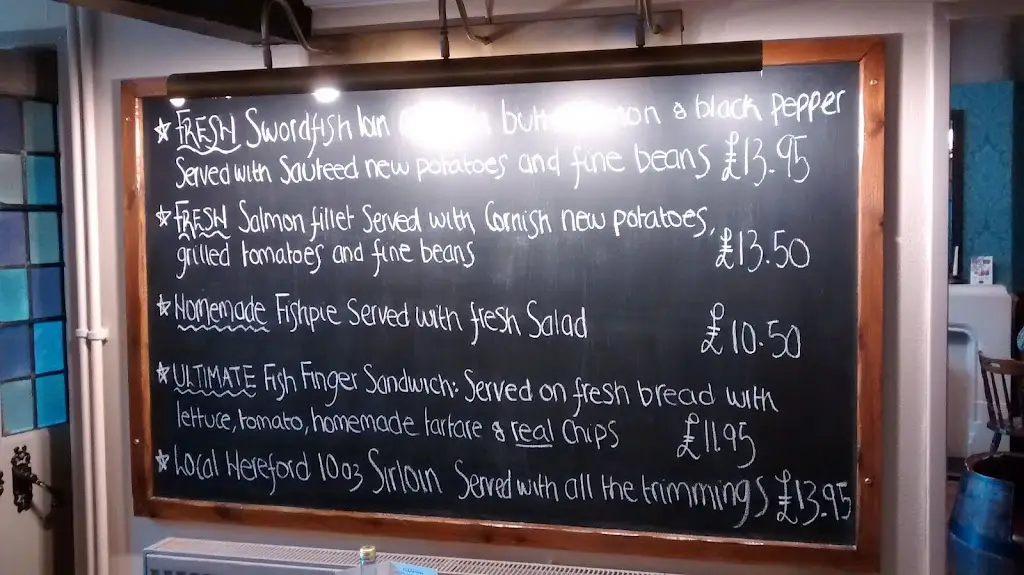 ★ FRESH Swordfish & black pepper
Served with Sauteed new potatoes and fine beans £13.95
★ FRESH Salmon fillet Served with Cornish new potatoes,
grilled tomatoes and fine beans £13.50
★ Homemade Fishpie Served with fresh Salad £10.50
★ ULTIMATE Fish Finger Sandwich: Served on fresh bread with
lettuce, tomato, homemade tartare & real Chips £11.95
★ Local Hereford 10oz Sirloin Served with all the trimmings £13.95